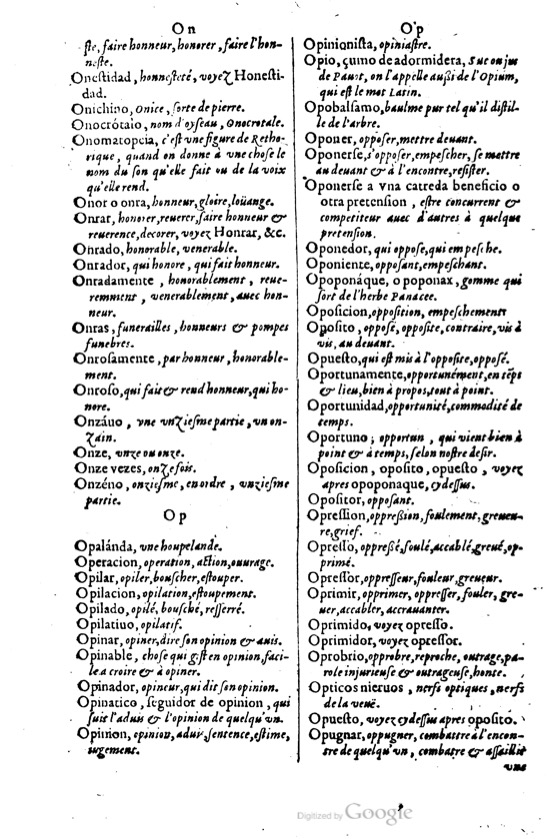 On
ste, faire honneur, honorer, faire l'hon-
neste.
Onestidad, honnesteté, voyez Honesti-
dad.
Onichino, Onice, sorte de pierre.
Onocrótalo, nom d'oyseau, Onocrotale.
Onomatopeia, c'est vne figure de Retho-
rique, quand on donne à vne chose le
nom du son qu'elle fait ou de la voix
qu'elle rend.
Onor o onra, honneur, gloire, loüange.
Onrar, honorer, reuerer, faire honneur &
reuerence, decorer, voyez Honrar, &c.
Onrado, honorable, venerable.
Onrador, qui honore, qui fait honneur.
Onradamente, honorablement, reue-
remment, venerablement, auec hon-
neur.
Onras, funerailles, honneurs & pompes
funebres.
Onrosamente, par honneur, honorable-
ment.
Onroso, qui fait & rend honneur, qui ho-
nore.
Onzáuo, vne vnziesme partie, vn on-
zain.
Onze, vnze ou onze.
Onze vezes, onze fois.
Onzéno, onziesme, en ordre, vnziesme
partie.
Op
Opalánda, vne houpelande.
Operacion, operation, action, ouurage.
Opilar, opiler, bouscher, estouper.
Opilacion, opilation, estoupement.
Opilado, opilé, bousché, resserré.
Opilatiuo, opilatif.
Opinar, opiner, dire son opinion & auis.
Opinable, chose qui gist en opinion, faci-
le a croire & à opiner.
Opinador, opineur, qui dit son opinion.
Opinatico, seguidor de opinion, qui
suit l'aduis & l'opinion de quelqu'vn.
Opinion, opinion, aduis, sentence, estime,
iugement.
Op
Opinionista, opiniastre.
Opio, çumo de adormidera, Suc ou jus
de Pauot, on l'appelle außi de l'Opium,
qui est le mot Latin.
Opobalsamo, baulme pur tel qu'il distil-
le de l'arbre.
Oponer, opposer, mettre deuant.
Oponerse, s'opposer, empescher, se mettre
au deuant & à l'encontre, resister.
Oponerse a vna catreda beneficio o
otra pretension, estre concurrent &
competiteur auec d'autres à quelque
pretension.
Oponedor, qui oppose, qui empesche.
Oponiente, opposant, empeschant.
Opoponáque, o poponax, gomme qui
sort de l'herbe Panacee.
Oposicion, opposition, empeschement
Opósito, opposé, opposite, contraire, vis à
vis, au deuant.
Opuesto, qui est mis à l'opposite, opposé.
Oportunamente, opportunément, en tẽps
& lieu, bien à propos, tout à point.
Oportunidad, opportunité, commodité de
temps.
Oportuno; opportun, qui vient bien à
point & à temps, selon nostre desir.
Oposicion, oposito, opuesto, voyez
apres opoponaque, cy dessus.
Opositor, opposant.
Opression, oppreßion, foulement, greueu-
re, grief.
Opresso, oppreßé, foulé, accablé, greué, op-
primé.
Opressor, oppresseur, fouleur, greueur.
Oprimir, opprimer, oppresser, fouler, gre-
uer, accabler, accrauanter.
Oprimido, voyez opresso.
Oprimidor, voyez opressor.
Oprobrio, opprobre, reproche, outrage, pa-
role iniurieuse & outrageuse, honte.
Opticos nieruos, nerfs optiques, nerfs
de la veuë.
Opuesto, voyez cy dessus apres oposito.
Opugnar, oppugner, combattre à l'encon-
tre de quelqu'vn, combatre & assaillir
vne
Digitized by Google